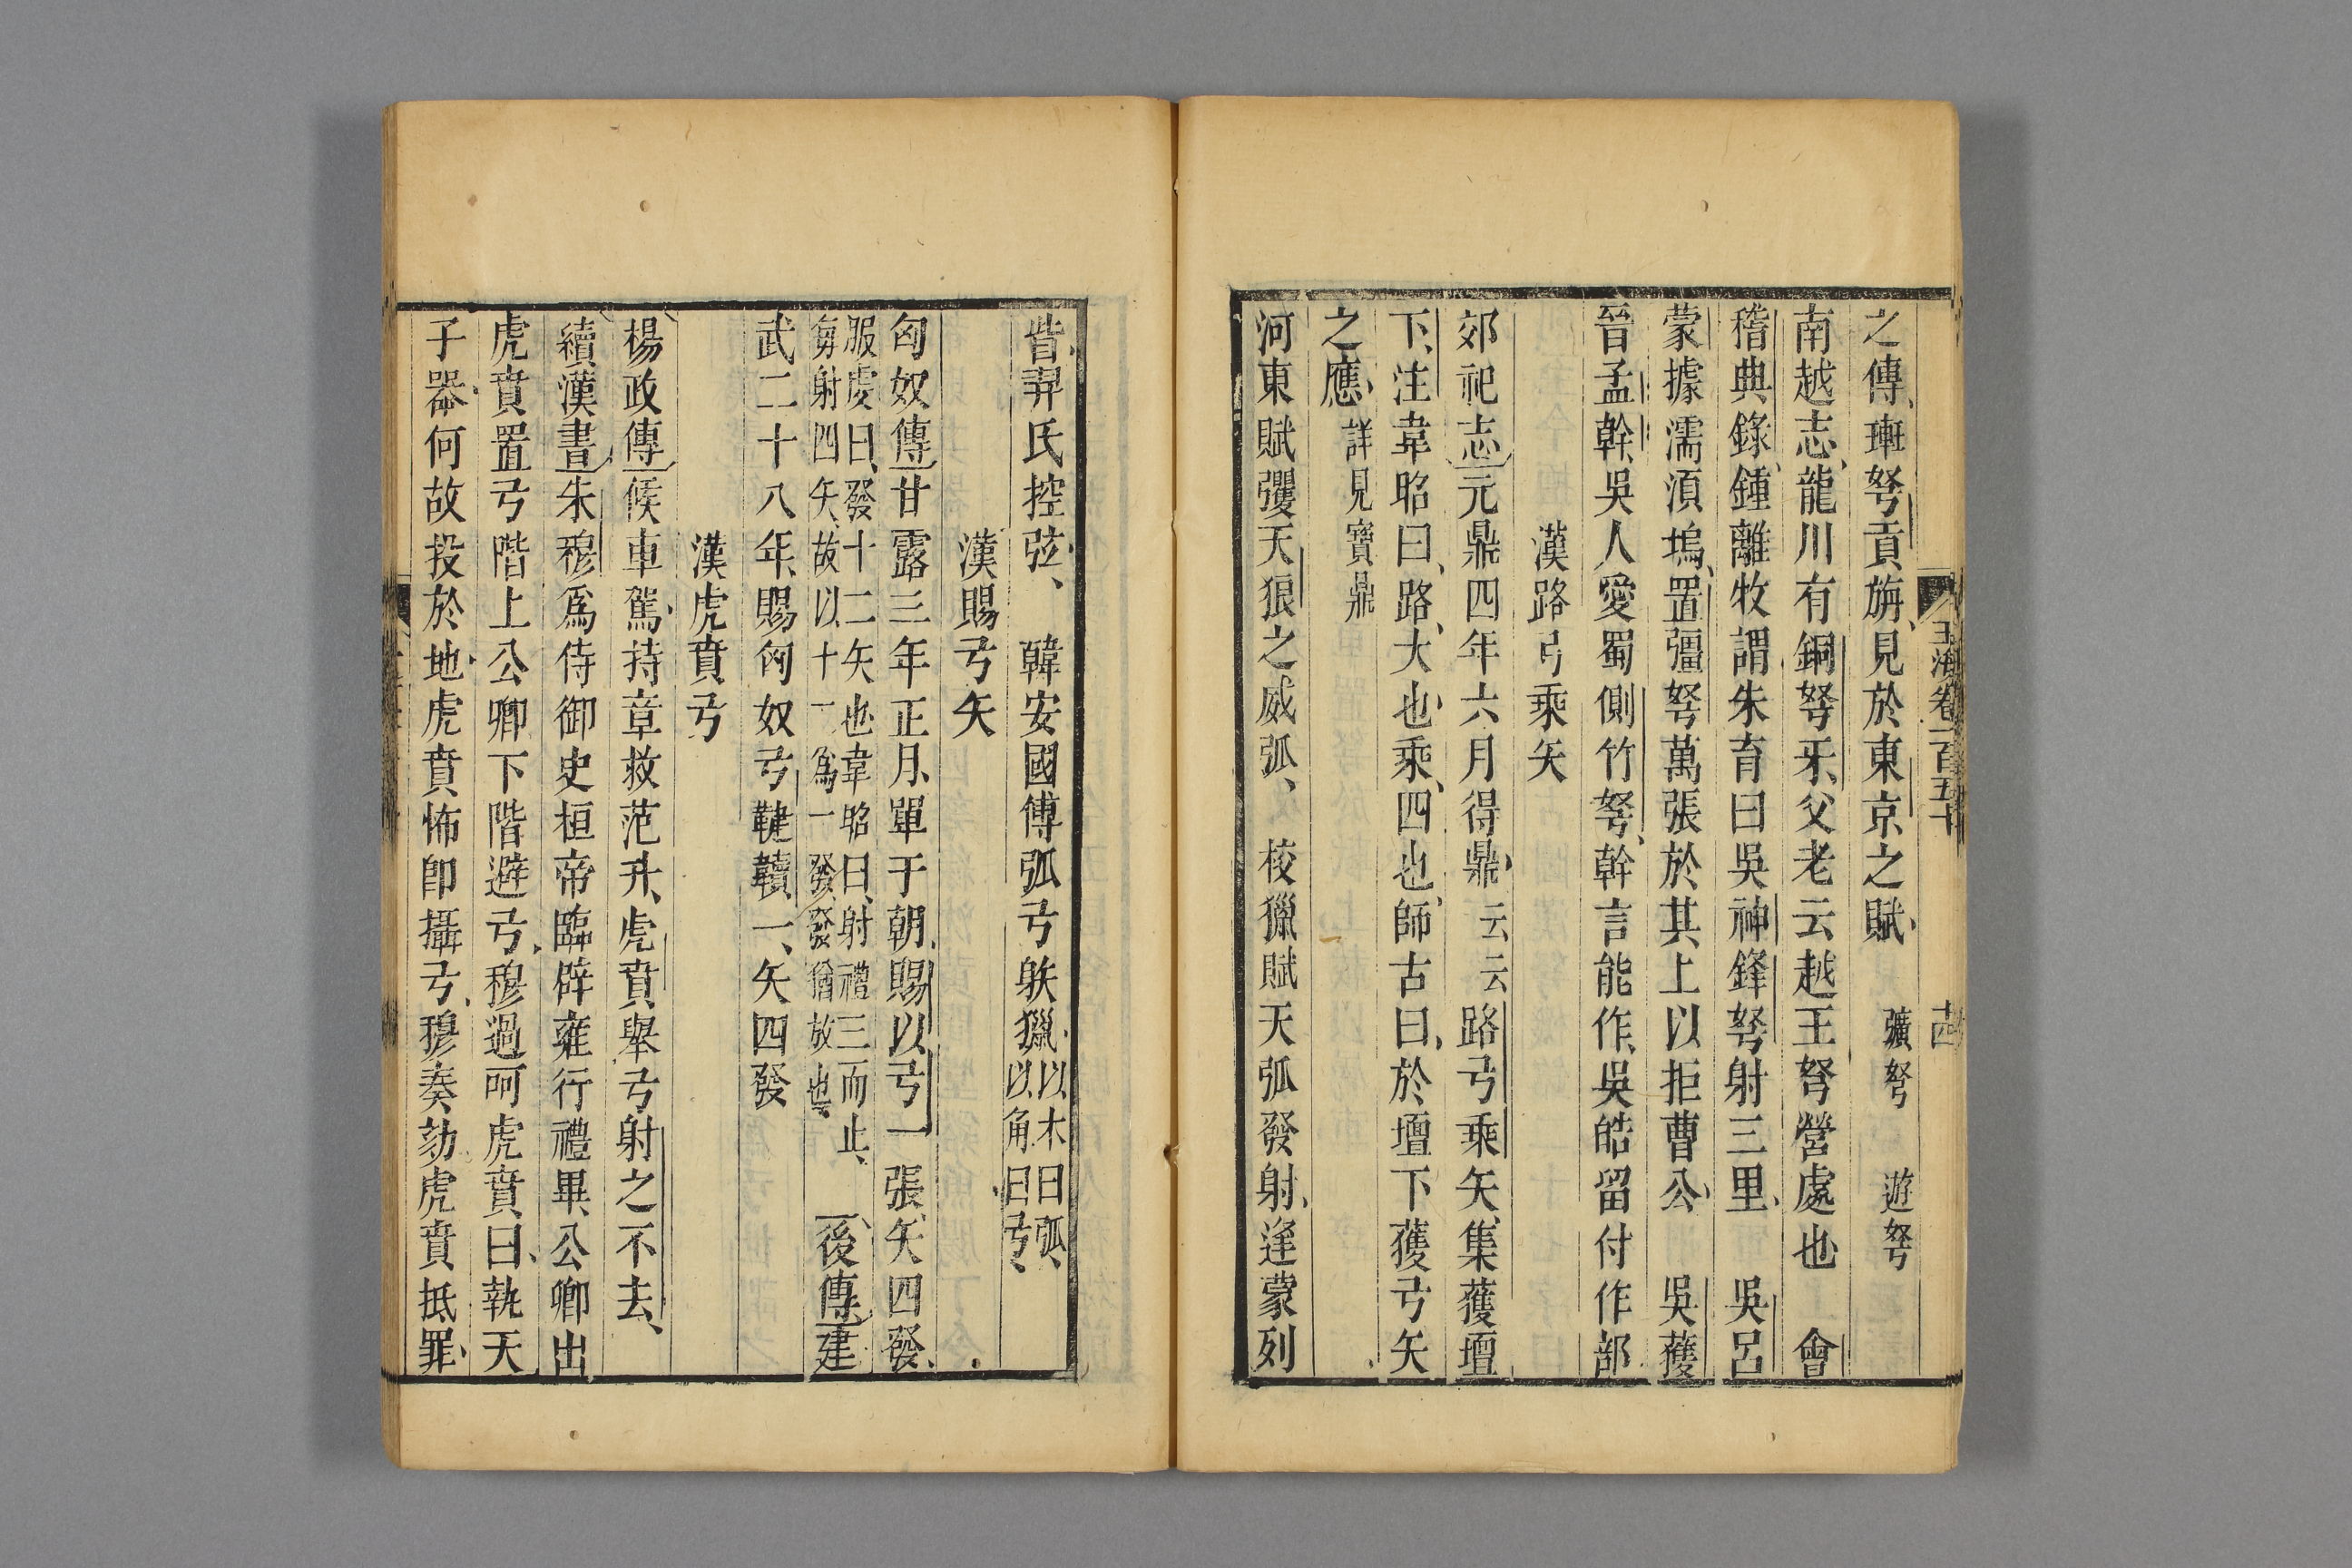 玉海卷一百五十
之傳㻞弩貢旃見於東京之賦 彍弩 遊弩
南越志龍川有銅弩牙父老云越王弩營處也 會
稽典錄鍾離牧謂朱育曰吳神鋒弩射三里 吳呂
蒙據濡須塢置彊弩萬張於其上以拒曹公 吳獲
晉孟幹吳人愛蜀側竹弩幹言能作吳皓留付作部
漢路弓乘矢
郊祀志元鼎四年六月得鼎云云路弓乘矢集獲壇
下注韋昭曰路大也乘四也師古曰於壇下獲弓矢
之應詳見寶鼎
河東賦彏天狼之威弧 校獵賦天弧發射逢蒙列
眥羿氏控弦 韓安國傳弧弓躲獵以木曰弧以角曰弓
漢賜弓矢
匈奴傳甘露三年正月單于朝賜以弓一張矢四發
服虔曰發十二矢也韋昭曰射禮三而止
每射四矢故以十二為一發發猶放也 後傳建
武二十八年賜匈奴弓鞬韥一矢四發
漢虎賁弓
楊政傳候車駕持章救范升虎賁舉弓射之不去
續漢書朱穆爲侍御史桓帝臨辟雍行禮畢公卿出
虎賁置弓階上公卿下階避弓穆過呵虎賁曰執天
子器何故投於地虎賁怖卽攝弓穆奏劾虎賁抵罪